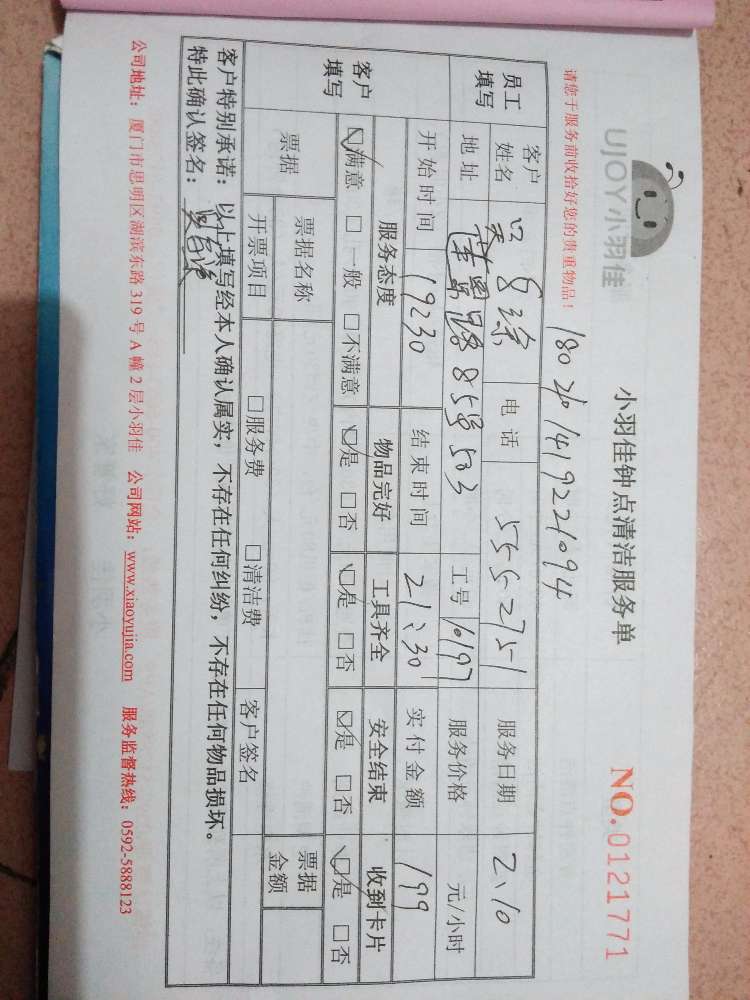 UJOY小羽佳
小羽佳钟点清洁服务单
NO. 0121771
请您于服务前收拾好您的贵重物品！
员工填写
客户姓名 电话 5552751 服务日期 2、10
地址 路 503 工号 10197 服务价格 元/小时
开始时间 19230 结束时间 21:30 实付金额 199
客户填写
服务态度 物品完好 工具齐全 安全结束 收到卡片
☑满意 □一般 □不满意 ☑是 □否 ☑是 □否 ☑是 □否 ☑是 □否
票据 票据名称 票据金额
开票项目 □服务费 □清洁费 客户签名
客户特别承诺：以上填写经本人确认属实，不存在任何纠纷，不存在任何物品损坏。
特此确认签名：
公司地址：厦门市思明区湖滨东路 319 号 A 幢 2 层小羽佳 公司网站：www.xiaoyujia.com 服务监督热线：0592-5888123